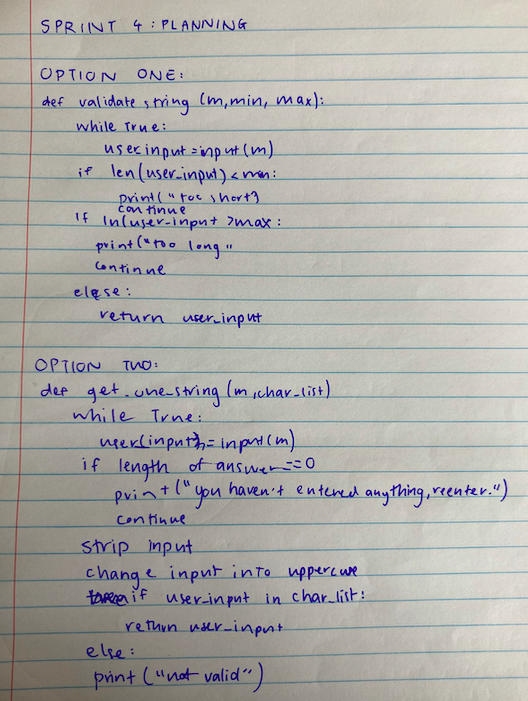 SPRINT 4: PLANNING
OPTION ONE:
def validate string (m, min, max):
while True:
user input = input (m)
if len(user_input) < min:
print("too short}
continue
if ln(user_input > max:
print("too long"
continue
else:
return user_input
OPTION TWO:
def get_one_string (m, char_list)
while True:
user(input) = input (m)
if length of answer == 0
print ("you haven't entered anything, reenter.")
continue
strip input
change input into uppercase
if user_input in char_list:
return user_input
else:
print ("not valid")